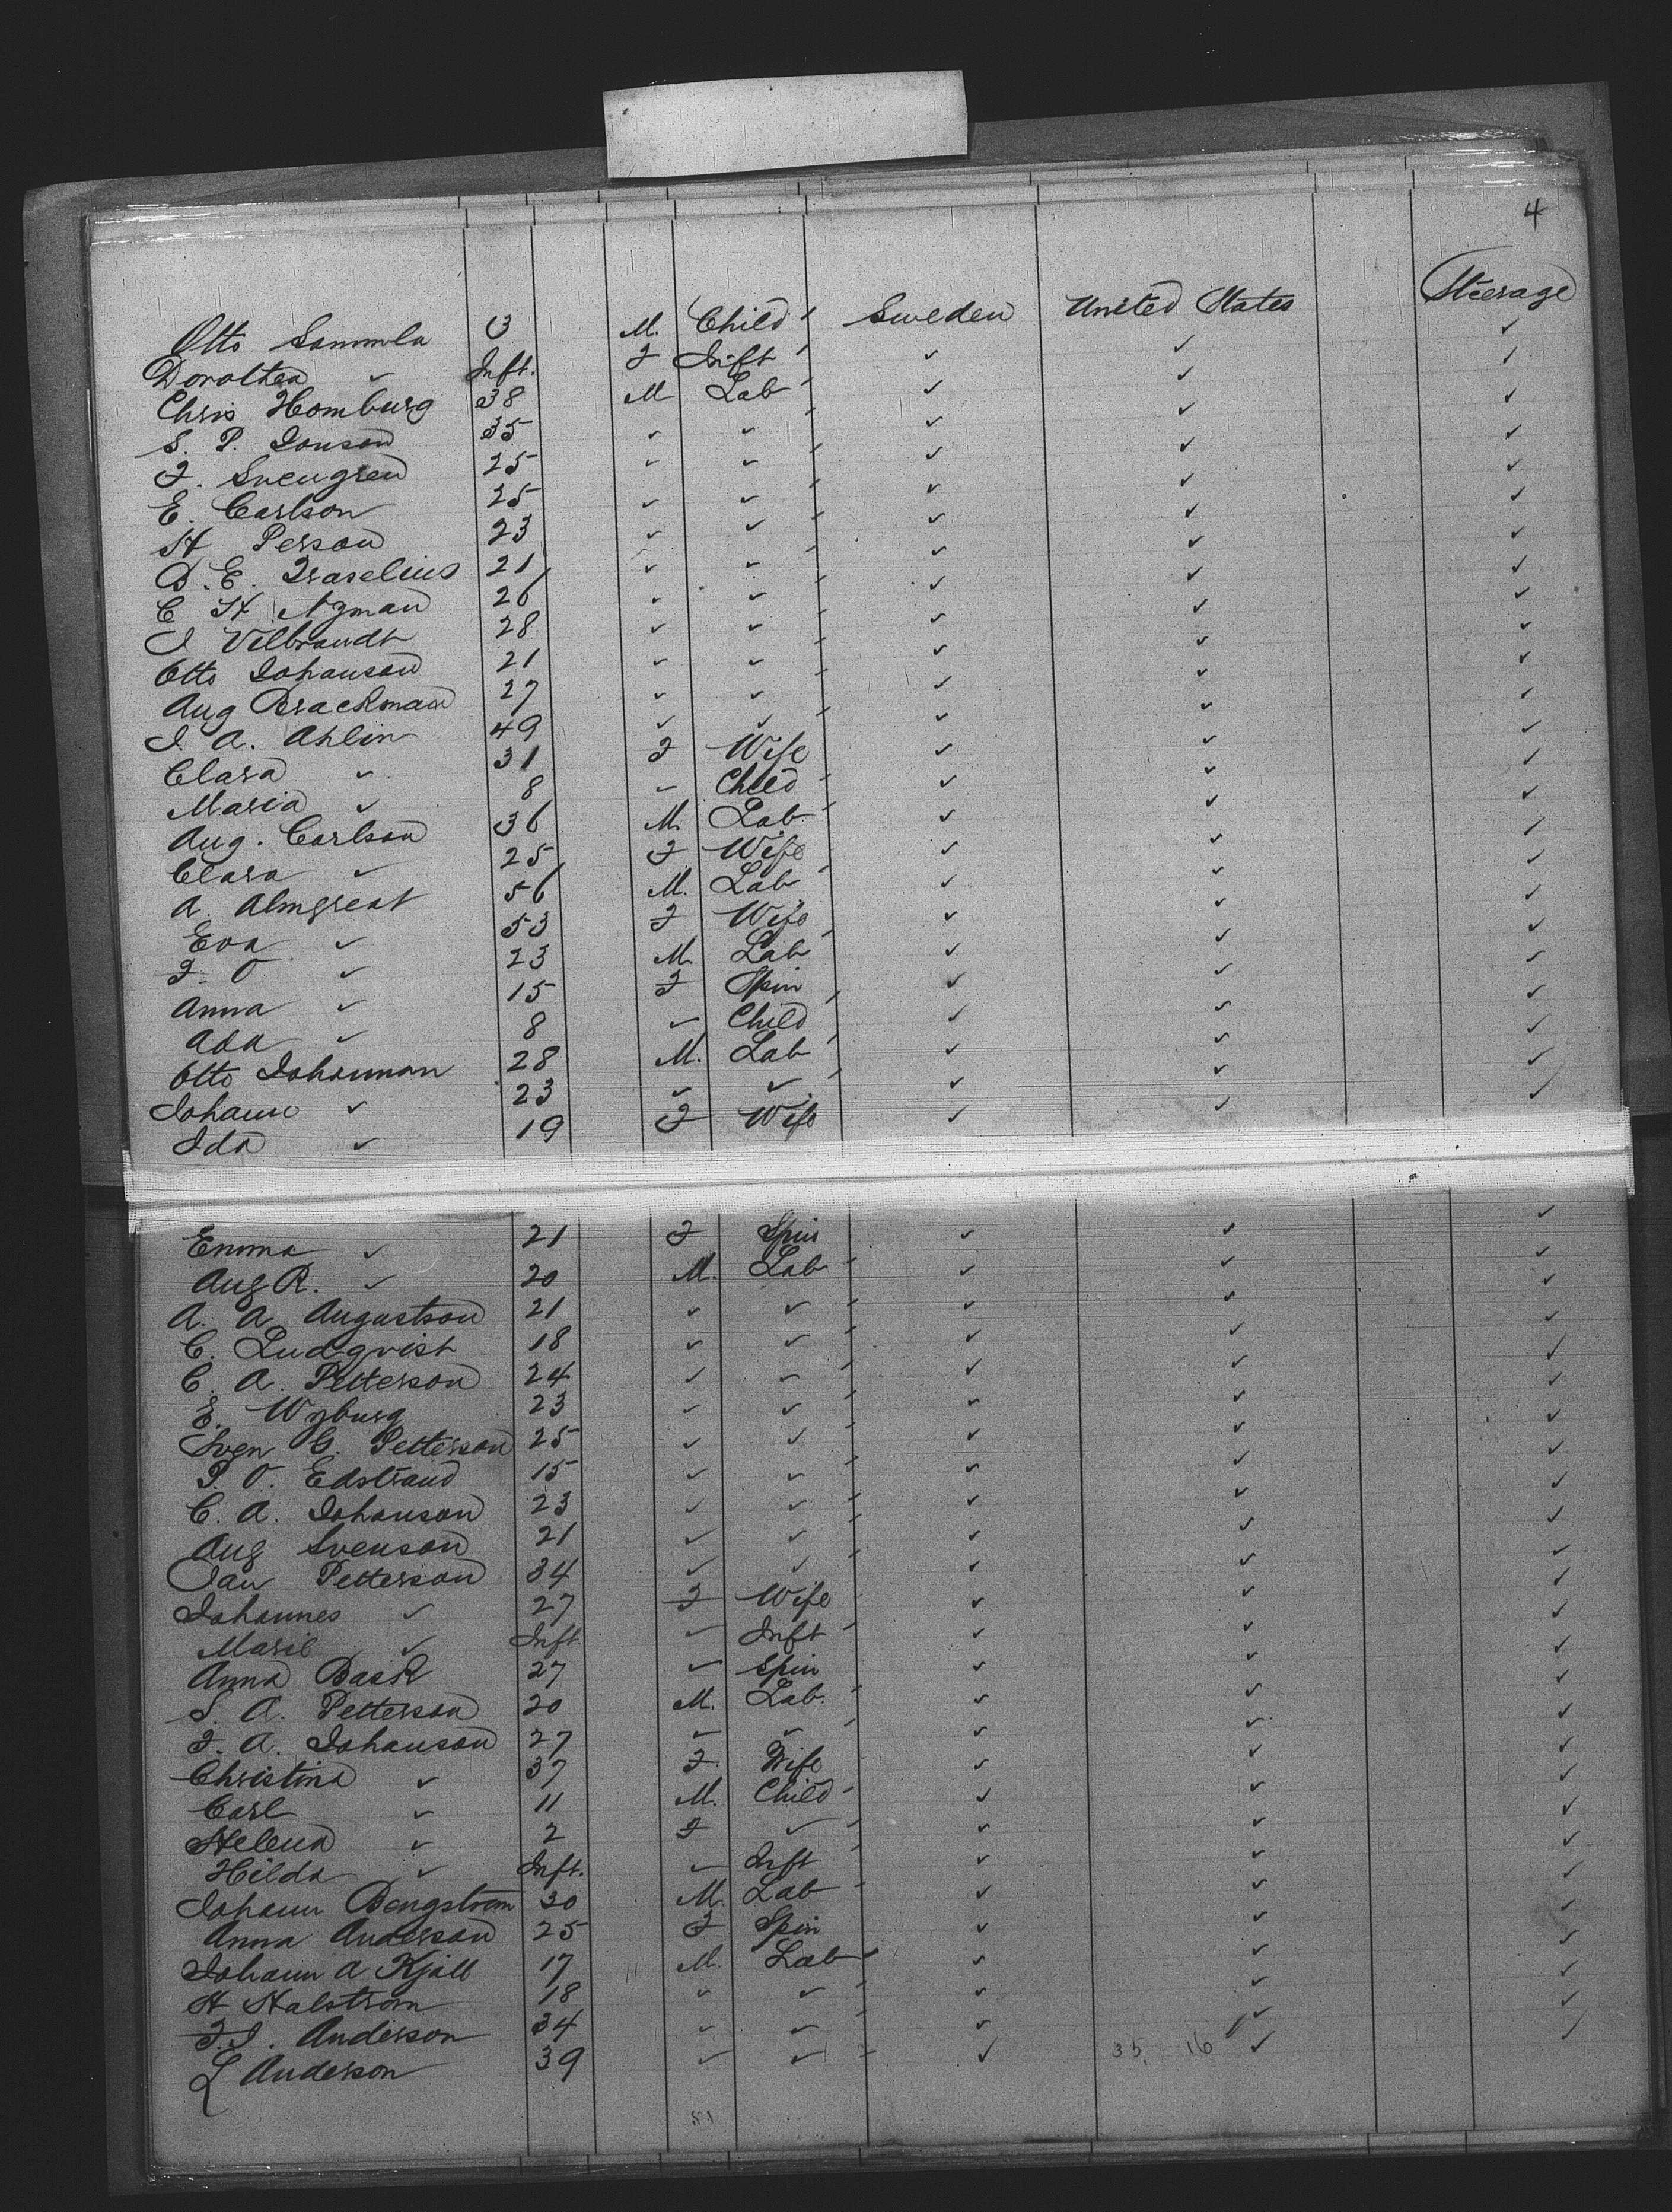 4
Otto Sammla 3 M. Child Sweden United States Steerage
Dorothea ✓ Inft. F Inft ✓ ✓ ✓
Chris Homburg 38 M Lab ✓ ✓ ✓
S. P. Jonson 35 ✓ ✓ ✓ ✓ ✓
F. Svengren 25 ✓ ✓ ✓ ✓ ✓
E. Carlson 25 ✓ ✓ ✓ ✓ ✓
H Person 23 ✓ ✓ ✓ ✓ ✓
B. E. Fraselius 21 ✓ ✓ ✓ ✓ ✓
C H Nyman 26 ✓ ✓ ✓ ✓ ✓
J Vilbrandt 28 ✓ ✓ ✓ ✓ ✓
Otto Johanson 21 ✓ ✓ ✓ ✓ ✓
Aug Brackman 27 ✓ ✓ ✓ ✓ ✓
J. A. Ahlin 49 ✓ ✓ ✓ ✓ ✓
Clara ✓ 31 F Wife ✓ ✓ ✓
Maria ✓ 8 ✓ Child ✓ ✓ ✓
Aug. Carlson 36 M. Lab ✓ ✓ ✓
Clara ✓ 25 F Wife ✓ ✓ ✓
A. Almgreat 56 M. Lab ✓ ✓ ✓
Eva ✓ 53 F Wife ✓ ✓ ✓
F. O. ✓ 23 M. Lab ✓ ✓ ✓
Anna ✓ 15 F Spin ✓ ✓ ✓
Ada ✓ 8 ✓ Child ✓ ✓ ✓
Otto Johannan 28 M. Lab ✓ ✓ ✓
Johann ✓ 23 ✓ ✓ ✓ ✓ ✓
Ida ✓ 19 F Wife ✓ ✓ ✓
Emma ✓ 21 F Spin ✓ ✓ ✓
Aug R. ✓ 20 M. Lab ✓ ✓ ✓
A. A. Augustson 21 ✓ ✓ ✓ ✓ ✓
C. Ludqvist 18 ✓ ✓ ✓ ✓ ✓
C. A. Petterson 24 ✓ ✓ ✓ ✓ ✓
E. Wyburg 23 ✓ ✓ ✓ ✓ ✓
Sven G. Petterson 25 ✓ ✓ ✓ ✓ ✓
P. O. Edstrand 15 ✓ ✓ ✓ ✓ ✓
C. A. Johanson 23 ✓ ✓ ✓ ✓ ✓
Aug Svenson 21 ✓ ✓ ✓ ✓ ✓
Jan Petterson 34 ✓ ✓ ✓ ✓ ✓
Johannes ✓ 27 F Wife ✓ ✓ ✓
Marie ✓ Inft ✓ Inft ✓ ✓ ✓
Anna Bask 27 ✓ Spin ✓ ✓ ✓
S. A. Petterson 20 M. Lab. ✓ ✓ ✓
F. A. Johanson 27 ✓ ✓ ✓ ✓ ✓
Christina ✓ 37 F. Wife ✓ ✓ ✓
Carl ✓ 11 M. Child ✓ ✓ ✓
Helena ✓ 2 F ✓ ✓ ✓ ✓
Hilda ✓ Inft. ✓ Inft ✓ ✓ ✓
Johann Bengstrom 30 M. Lab ✓ ✓ ✓
Anna Anderson 25 F Spin ✓ ✓ ✓
Johann A Kjall 17 M. Lab ✓ ✓ ✓
H Halstrom 18 ✓ ✓ ✓ ✓ ✓
F. J. Anderson 34 ✓ ✓ ✓ ✓ ✓
L Anderson 39 ✓ ✓ ✓ 35. 16 ✓ ✓